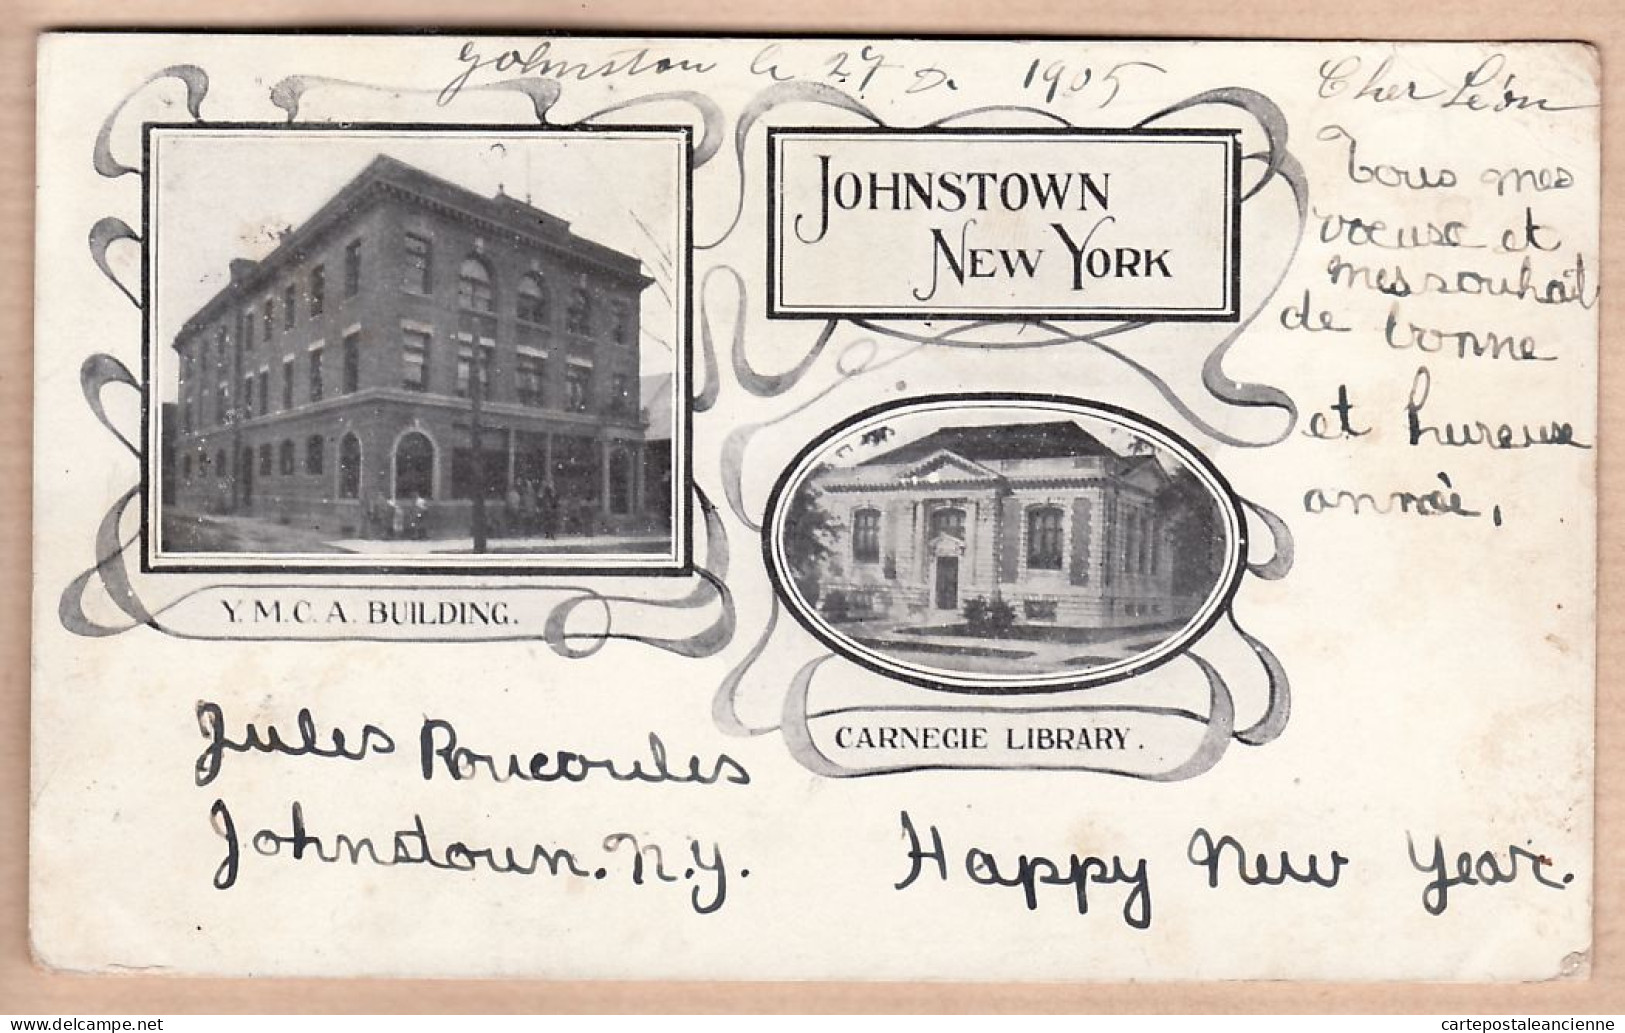 Johnston le 27 D. 1905
Cher Léon
Tous mes
voeuse et
mes souhait
de bonne
et hureuse
année,
JOHNSTOWN
NEW YORK
Y. M. C. A. BUILDING.
CARNEGIE LIBRARY.
Jules Roucoules
Johnstoun. N.Y.
Happy New Year.
delcampe.net
cartepostaleancienne